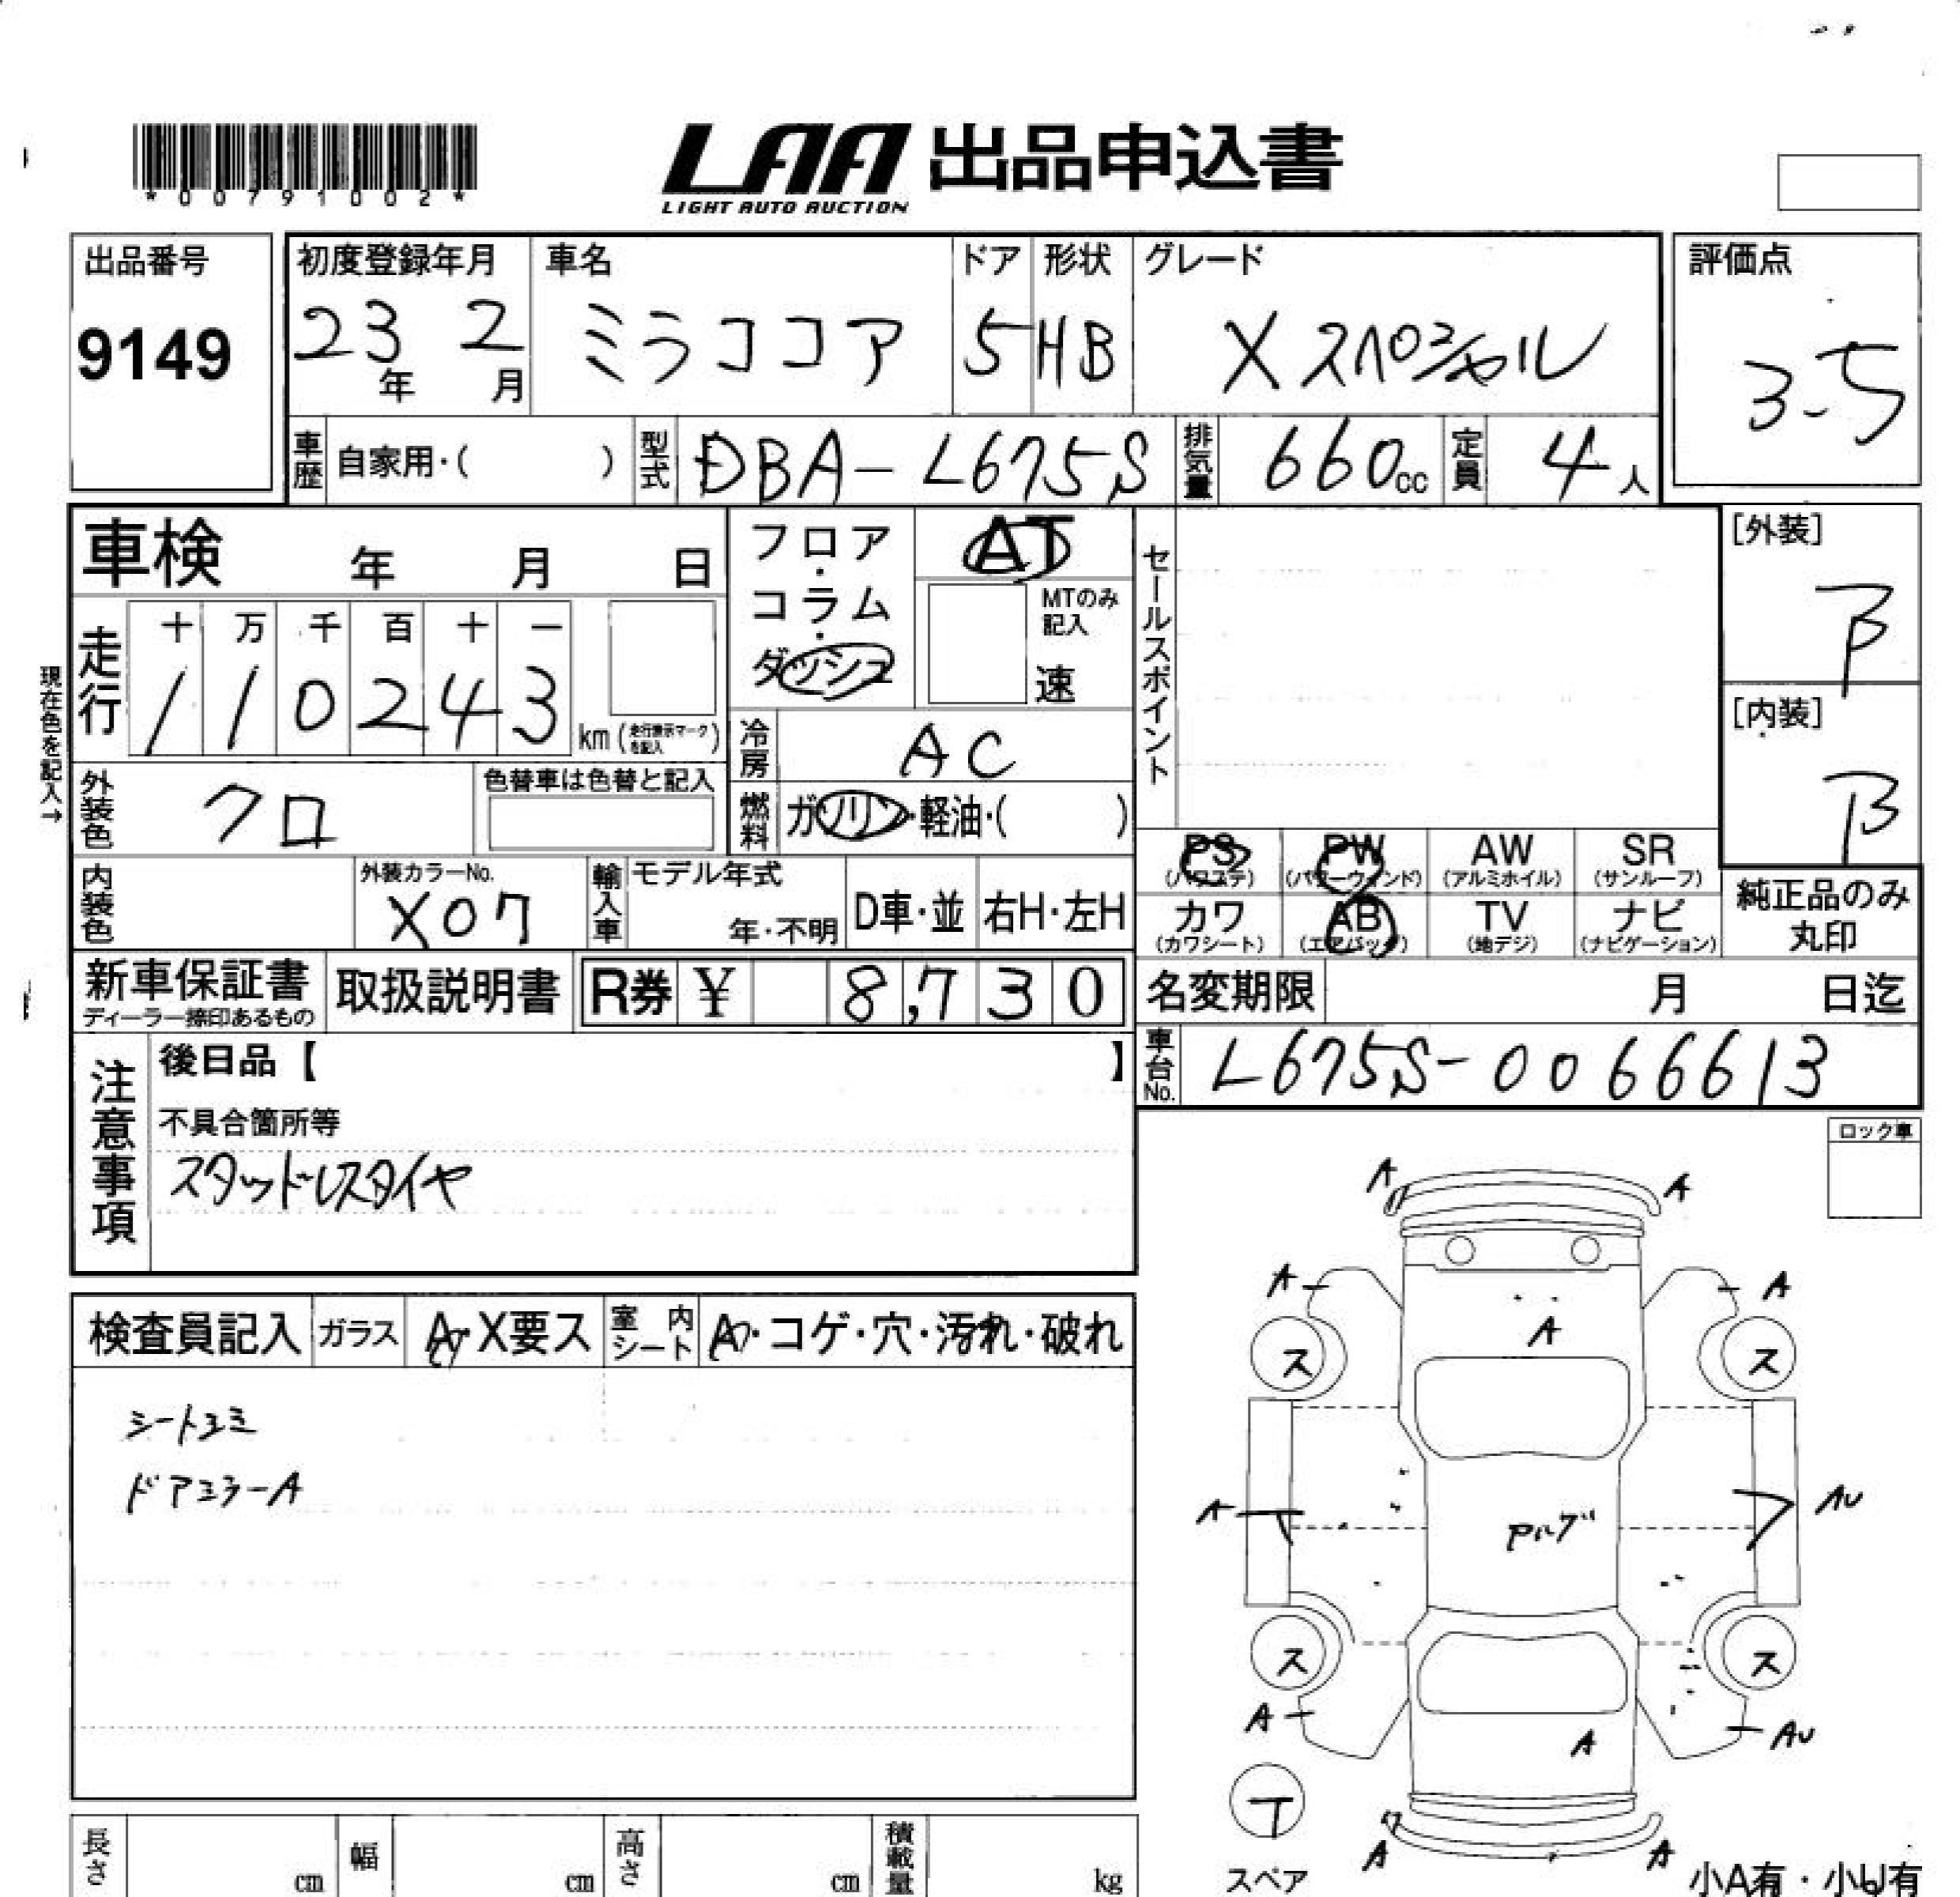 LAA 出品申込書
LIGHT AUTO AUCTION
*00791002*
出品番号
9149
初度登録年月
23年 2月
車名
ミラココア
ドア
5
形状
HB
グレード
X スペシャル
評価点
3.5
車歴 自家用・( )
型式 DBA-L675S
排気量 660cc
定員 4人
車検 年 月 日
フロア・コラム・ダッシュ
AT
MTのみ記入
速
セールスポイント
[外装]
B
[内装]
B
現在色を記入→
走行
十 万 千 百 十 一
1 1 0 2 4 3 km (走行表示マークを記入)
冷房 AC
外装色 クロ
色替車は色替と記入
燃料 ガソリン・軽油・( )
PS (パワステ)
PW (パワーウィンド)
AW (アルミホイル)
SR (サンルーフ)
内装色
外装カラーNo.
X07
輸入車
モデル年式
年・不明
D車・並
右H・左H
カワ (カワシート)
AB (エアバッグ)
TV (地デジ)
ナビ (ナビゲーション)
純正品のみ丸印
新車保証書
ディーラー捺印あるもの
取扱説明書
R券 ¥ 8,730
名変期限 月 日迄
車台No. L675S-0066613
注意事項
後日品【 】
不具合箇所等
スタッドレスタイヤ
ロック車
検査員記入
ガラス
A・X要ス
室内シート
A・コゲ・穴・汚れ・破れ
シートヨミ
ドアミラーA
A A
A A
A
ス ス
A AU
ス ス
A AU
A
T
スペア
A A
小A有・小U有
長さ cm
幅 cm
高さ cm
積載量 kg